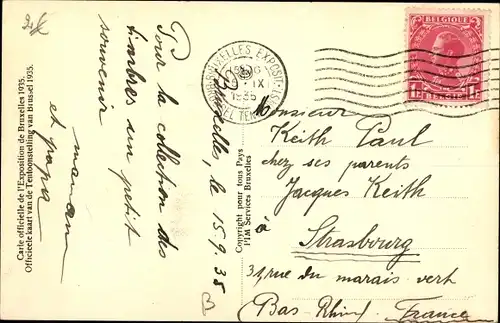 Carte officielle de l'Exposition de Bruxelles 1935.
Officieele kaart van de Tentoonstelling van Brussel 1935.
Bruxelles, le 15.9.35
Pour la collection des
timbres un petit
souvenir
maman
et papa
Copyright pour tous Pays
PIM Services Bruxelles
BRUXELLES EXPOSIT
IX
1935
BELGIQUE
1F
Monsieur
Keith Paul
chez ses parents
Jacques Keith
à
Strasbourg
31, rue du marais vert
Bas-Rhin. France